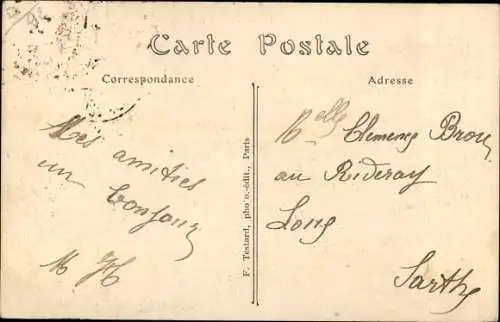 Carte Postale
Correspondance
Adresse
Mes amitiés
un bonjour
M H
F. Testard, photo.-édit., Paris
Melle Clemence Brou
au Rideray
Long
Sarthe